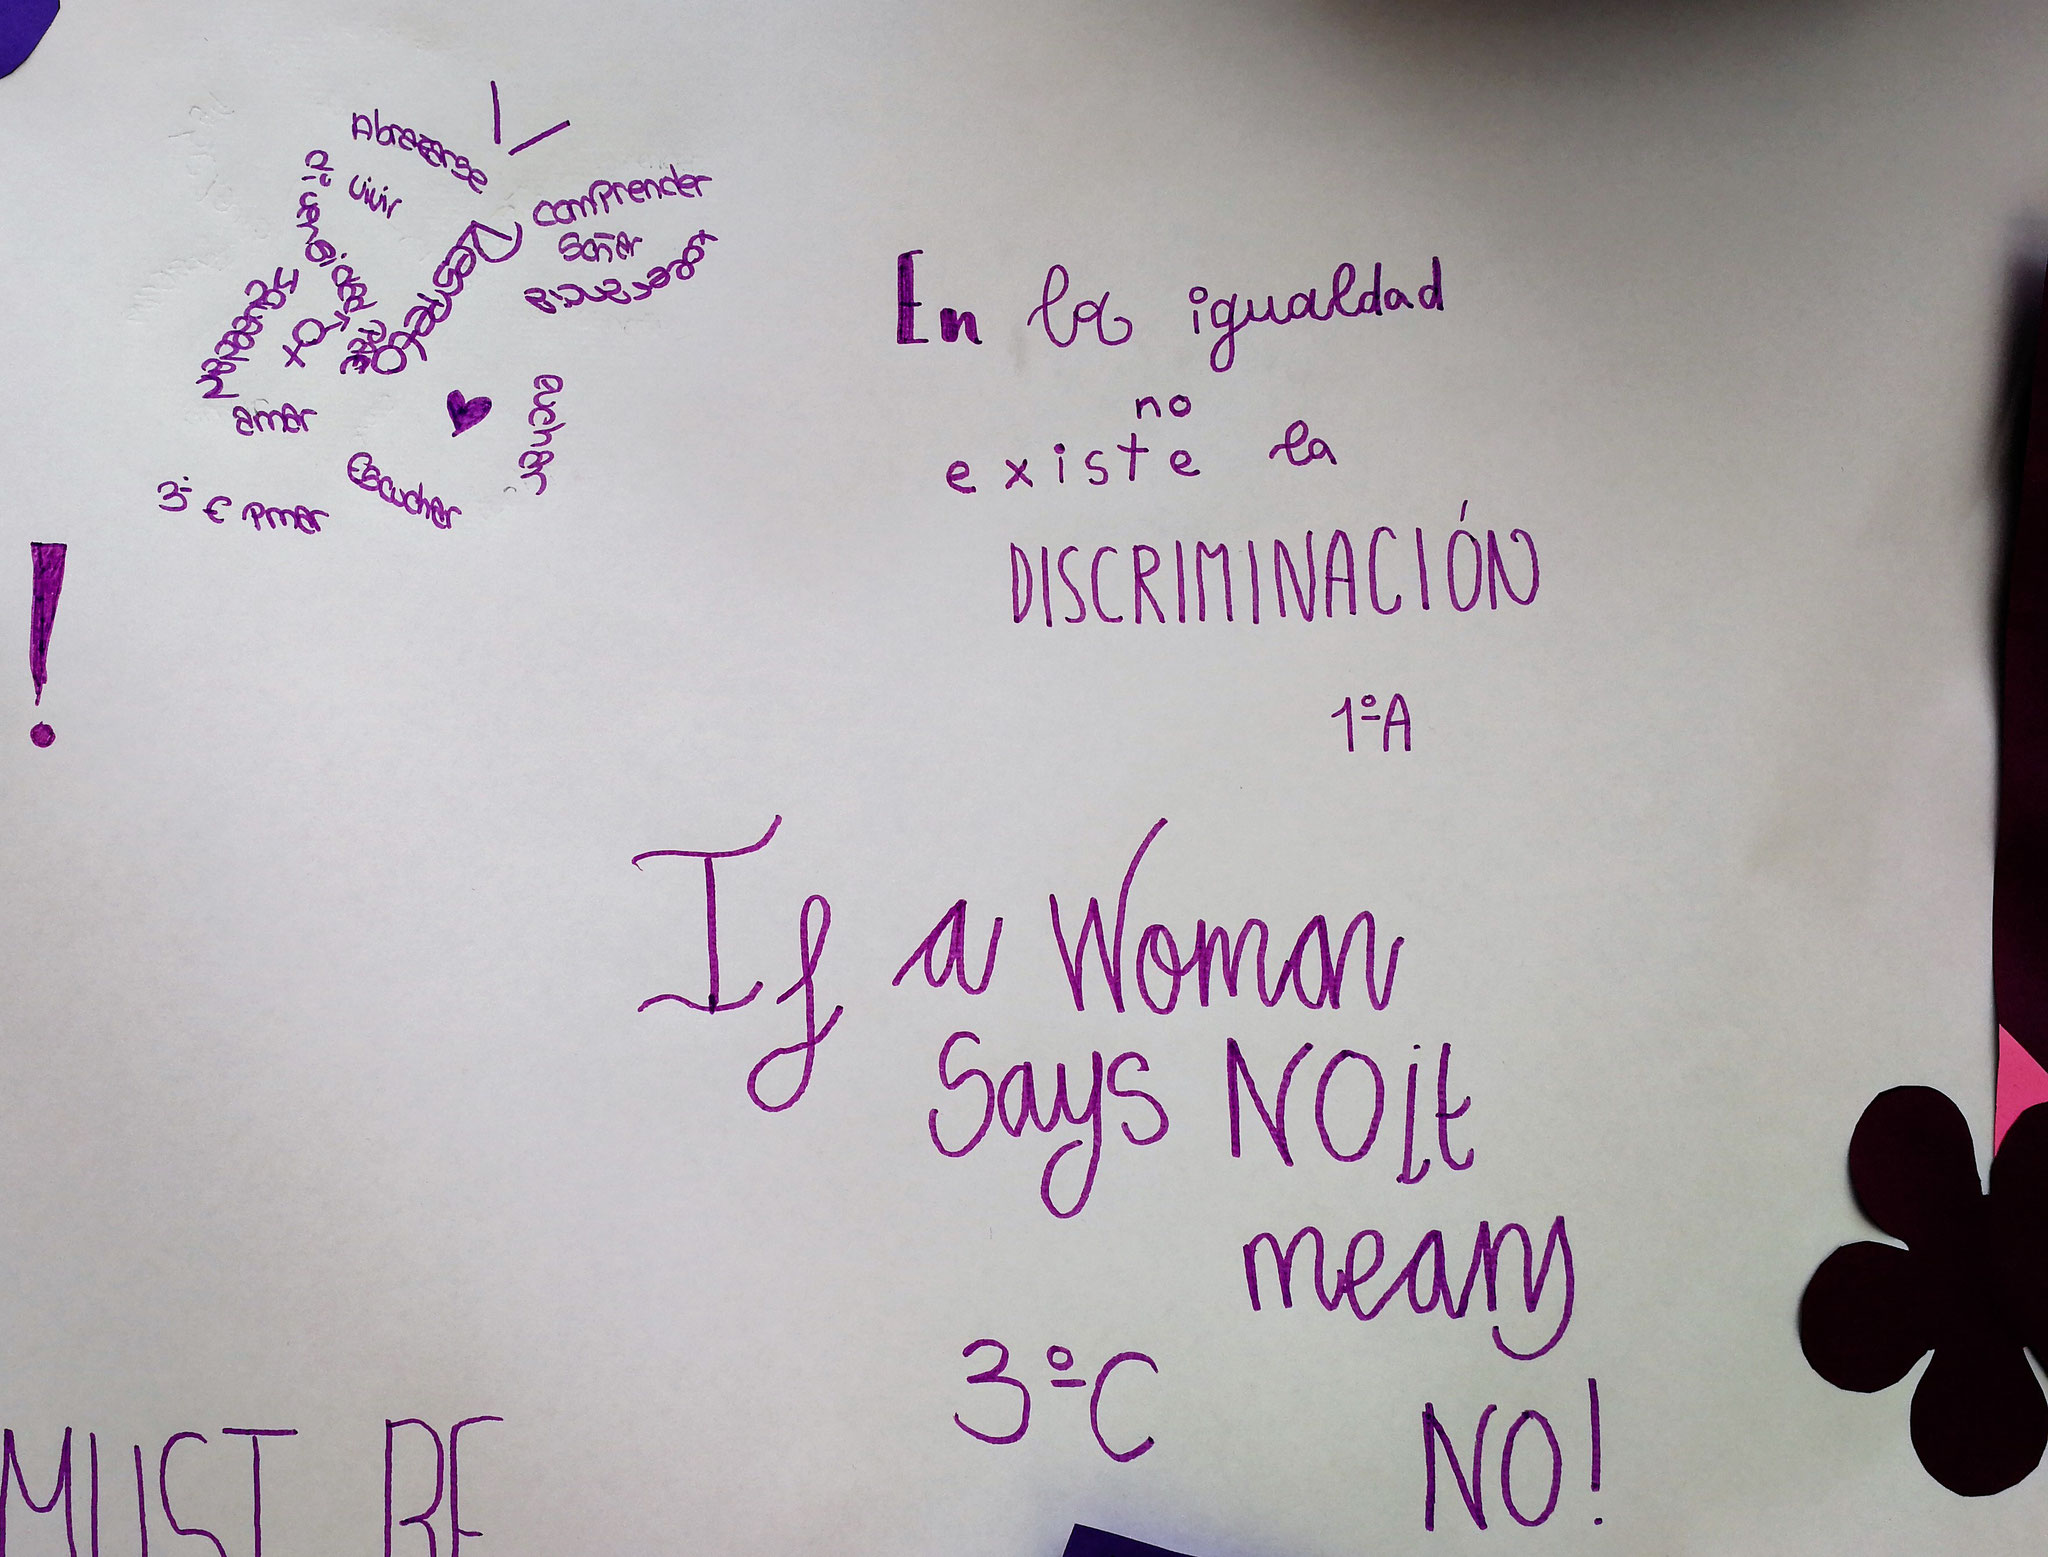 Abrazarse
vivir
comprender
soñar
Respeto
amar
♥
luchar
Escuchar
3º E PMAR
!
En la igualdad
no
existe la
DISCRIMINACIÓN
1ºA
If a Woman
Says NO it
means
3ºC
NO!
MUST BE